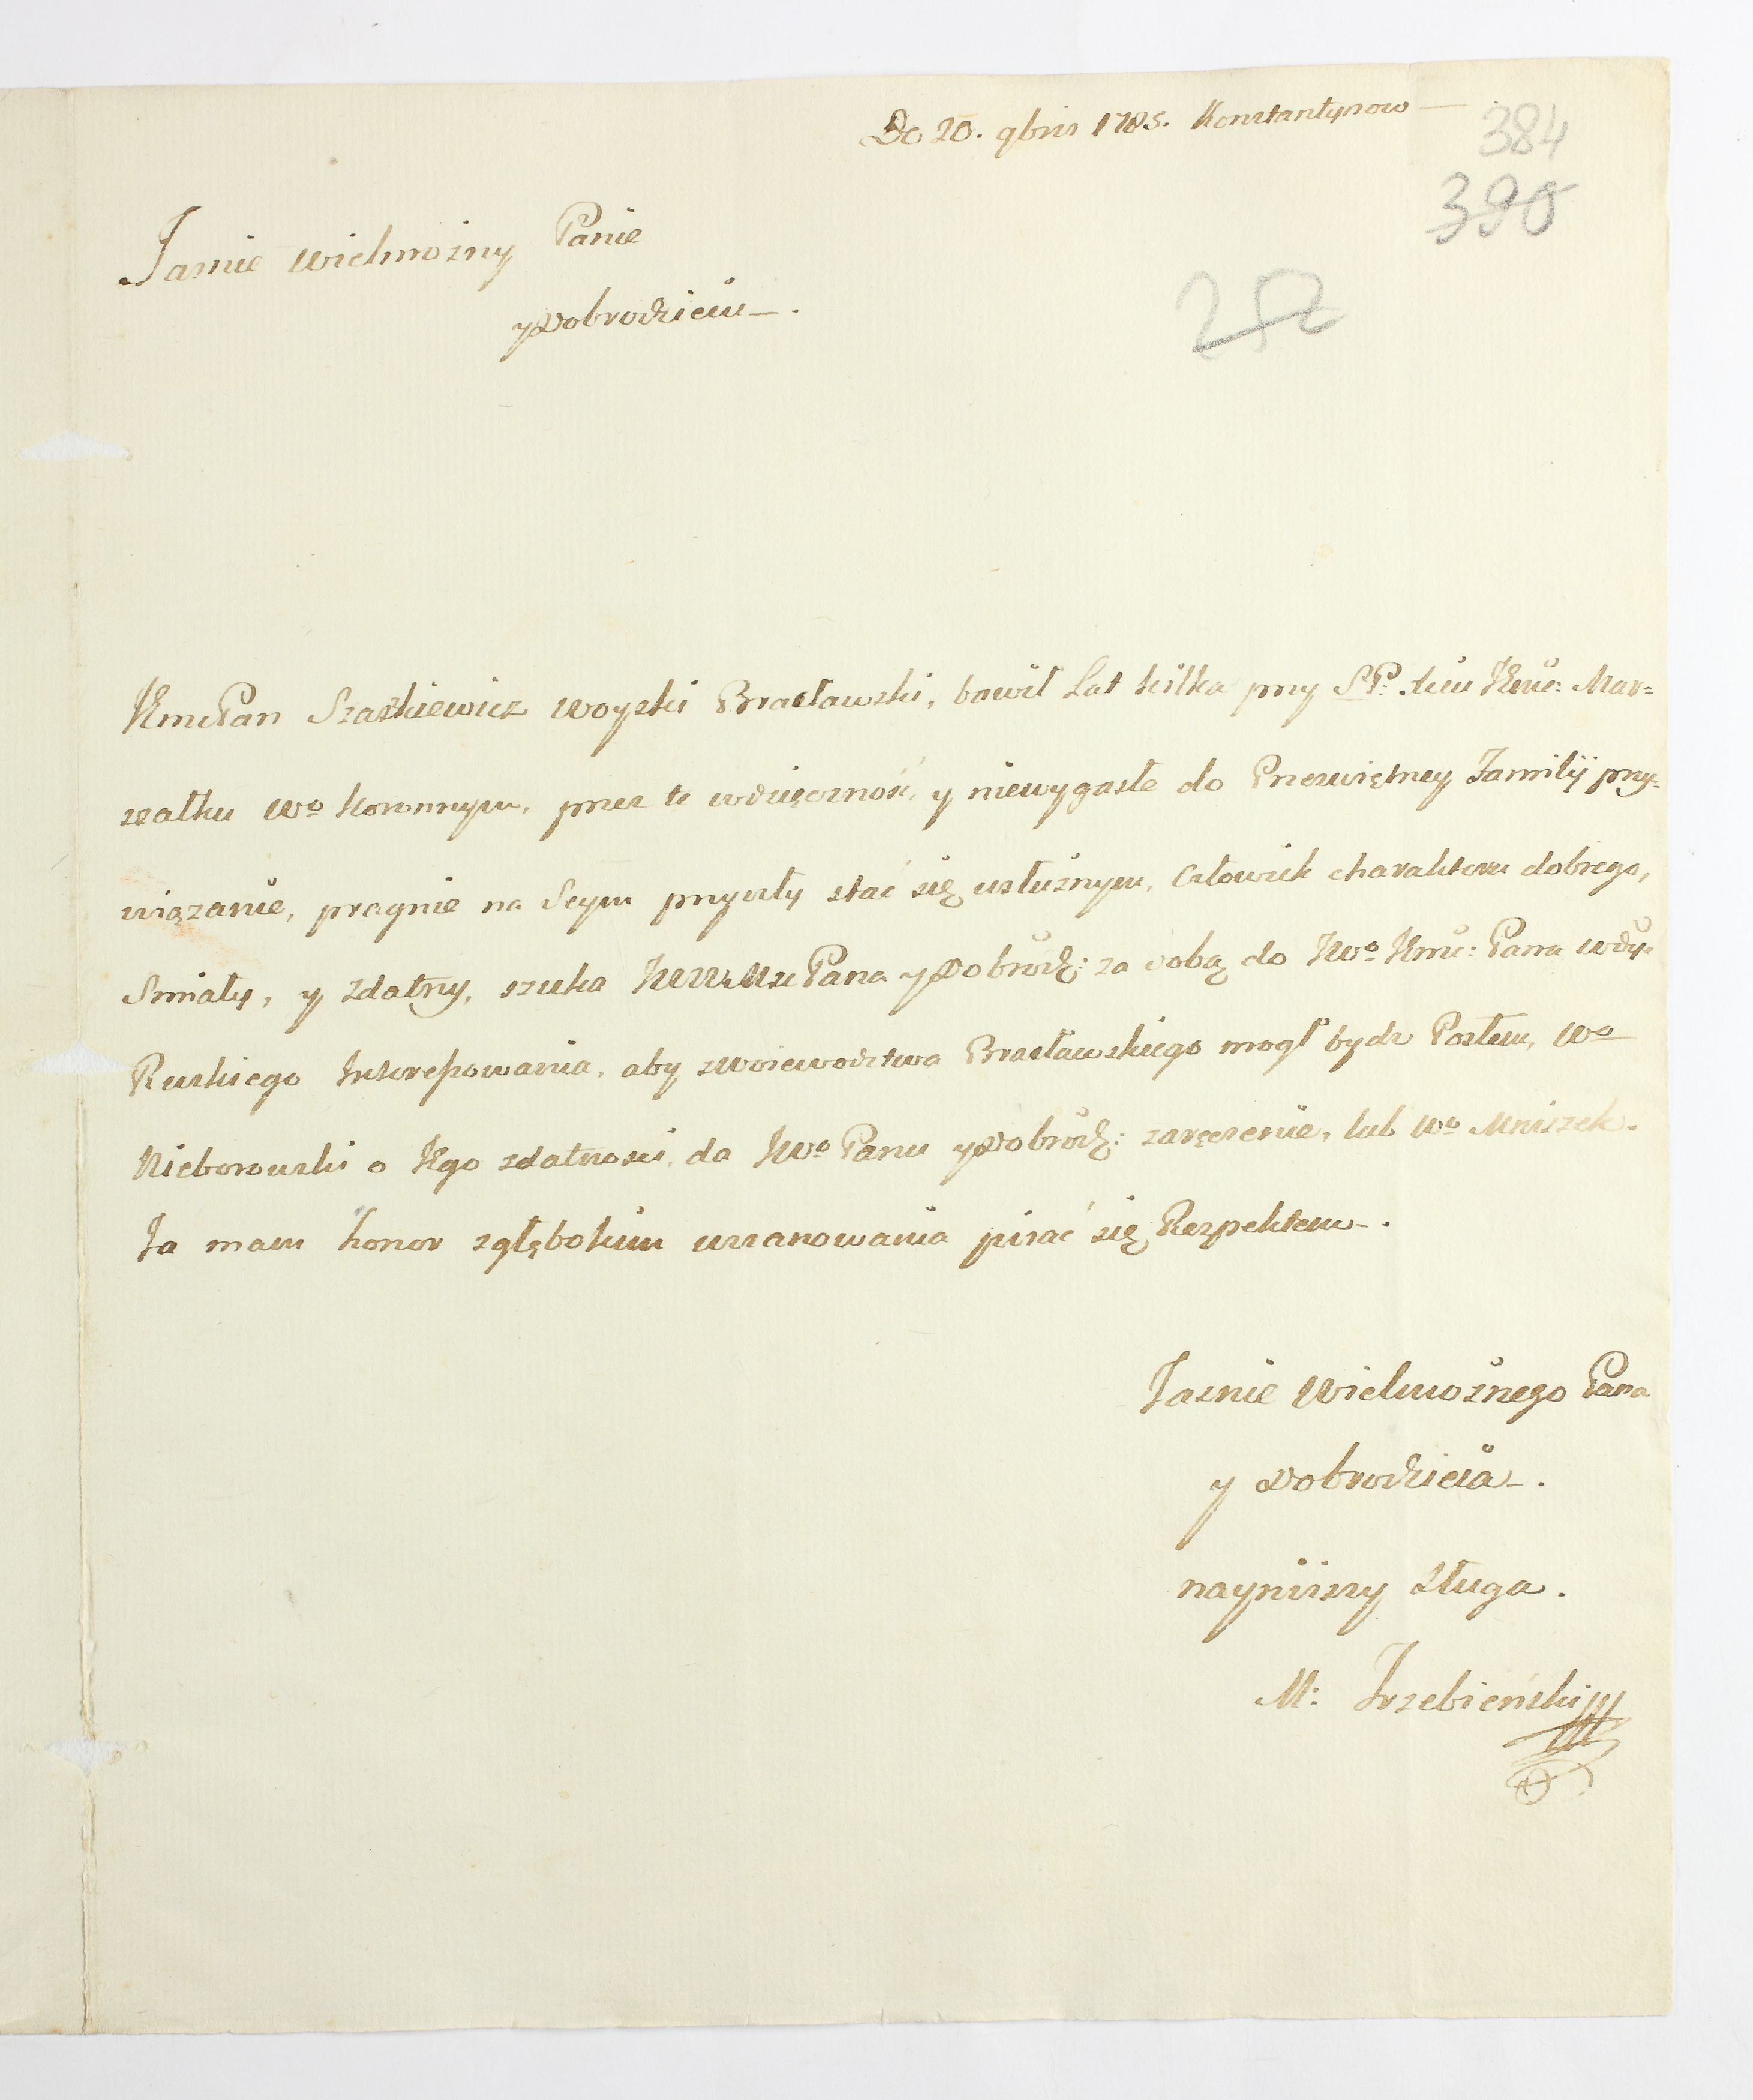 De 20. 9bris 1785. Konstantynow
384
390
252
Jasnie wielmozny Panie
y Dobrodzieiu.
JmcPan Szaszkiewicz Woyski Bracławski, bawił Lat kilka przy SP: Jmc: Mar=
szałku Wo Koronnym, przez te wdzięczność, y niewygasłe do Przeświętney Familij przy=
wiązanie, pragnie na Seym przyszły stać się usłużnym, Człowiek charakteru dobrego,
Smiały, y zdatny, szuka Pana y Dobrodz: za sobą do JWo Jmc: Pana Wdy
Ruskiego Interessowania, aby z Woiewodztwa Bracławskiego mogł bydz Posłem, Wo
Nieborowski o Jego zdatnosci, da JWo Panu y Dobrodz: zaręczenie, lub Wo Mniszek.
Ja mam honor z głębokim uszanowania pisać się Respektem.
Jasnie Wielmoznego Pana
y Dobrodzieia.
nayniższy Sługa.
M: Trzebieński